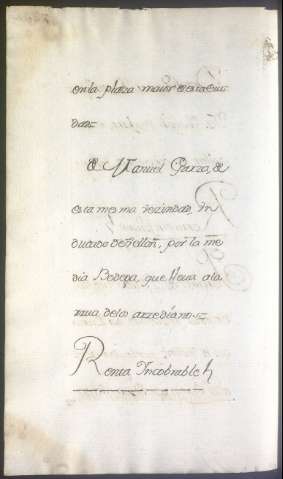 en la plaza maior de esta Ciu
dad=
D. Manuel Garzo, de
esta mesma vezindad, Un
ducado de Vellon, por la me
dia Bodega, que lleva a la
rrua de los arzedianos=
Renta Incobrable